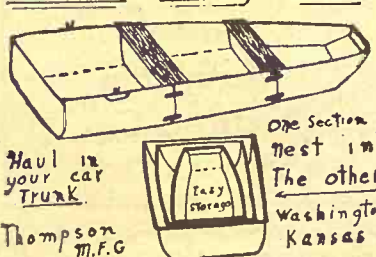 Haul in
your car
Trunk
Thompson
M.F.G
Easy
Storage
one Section
nest in
The other
Washington
Kansas